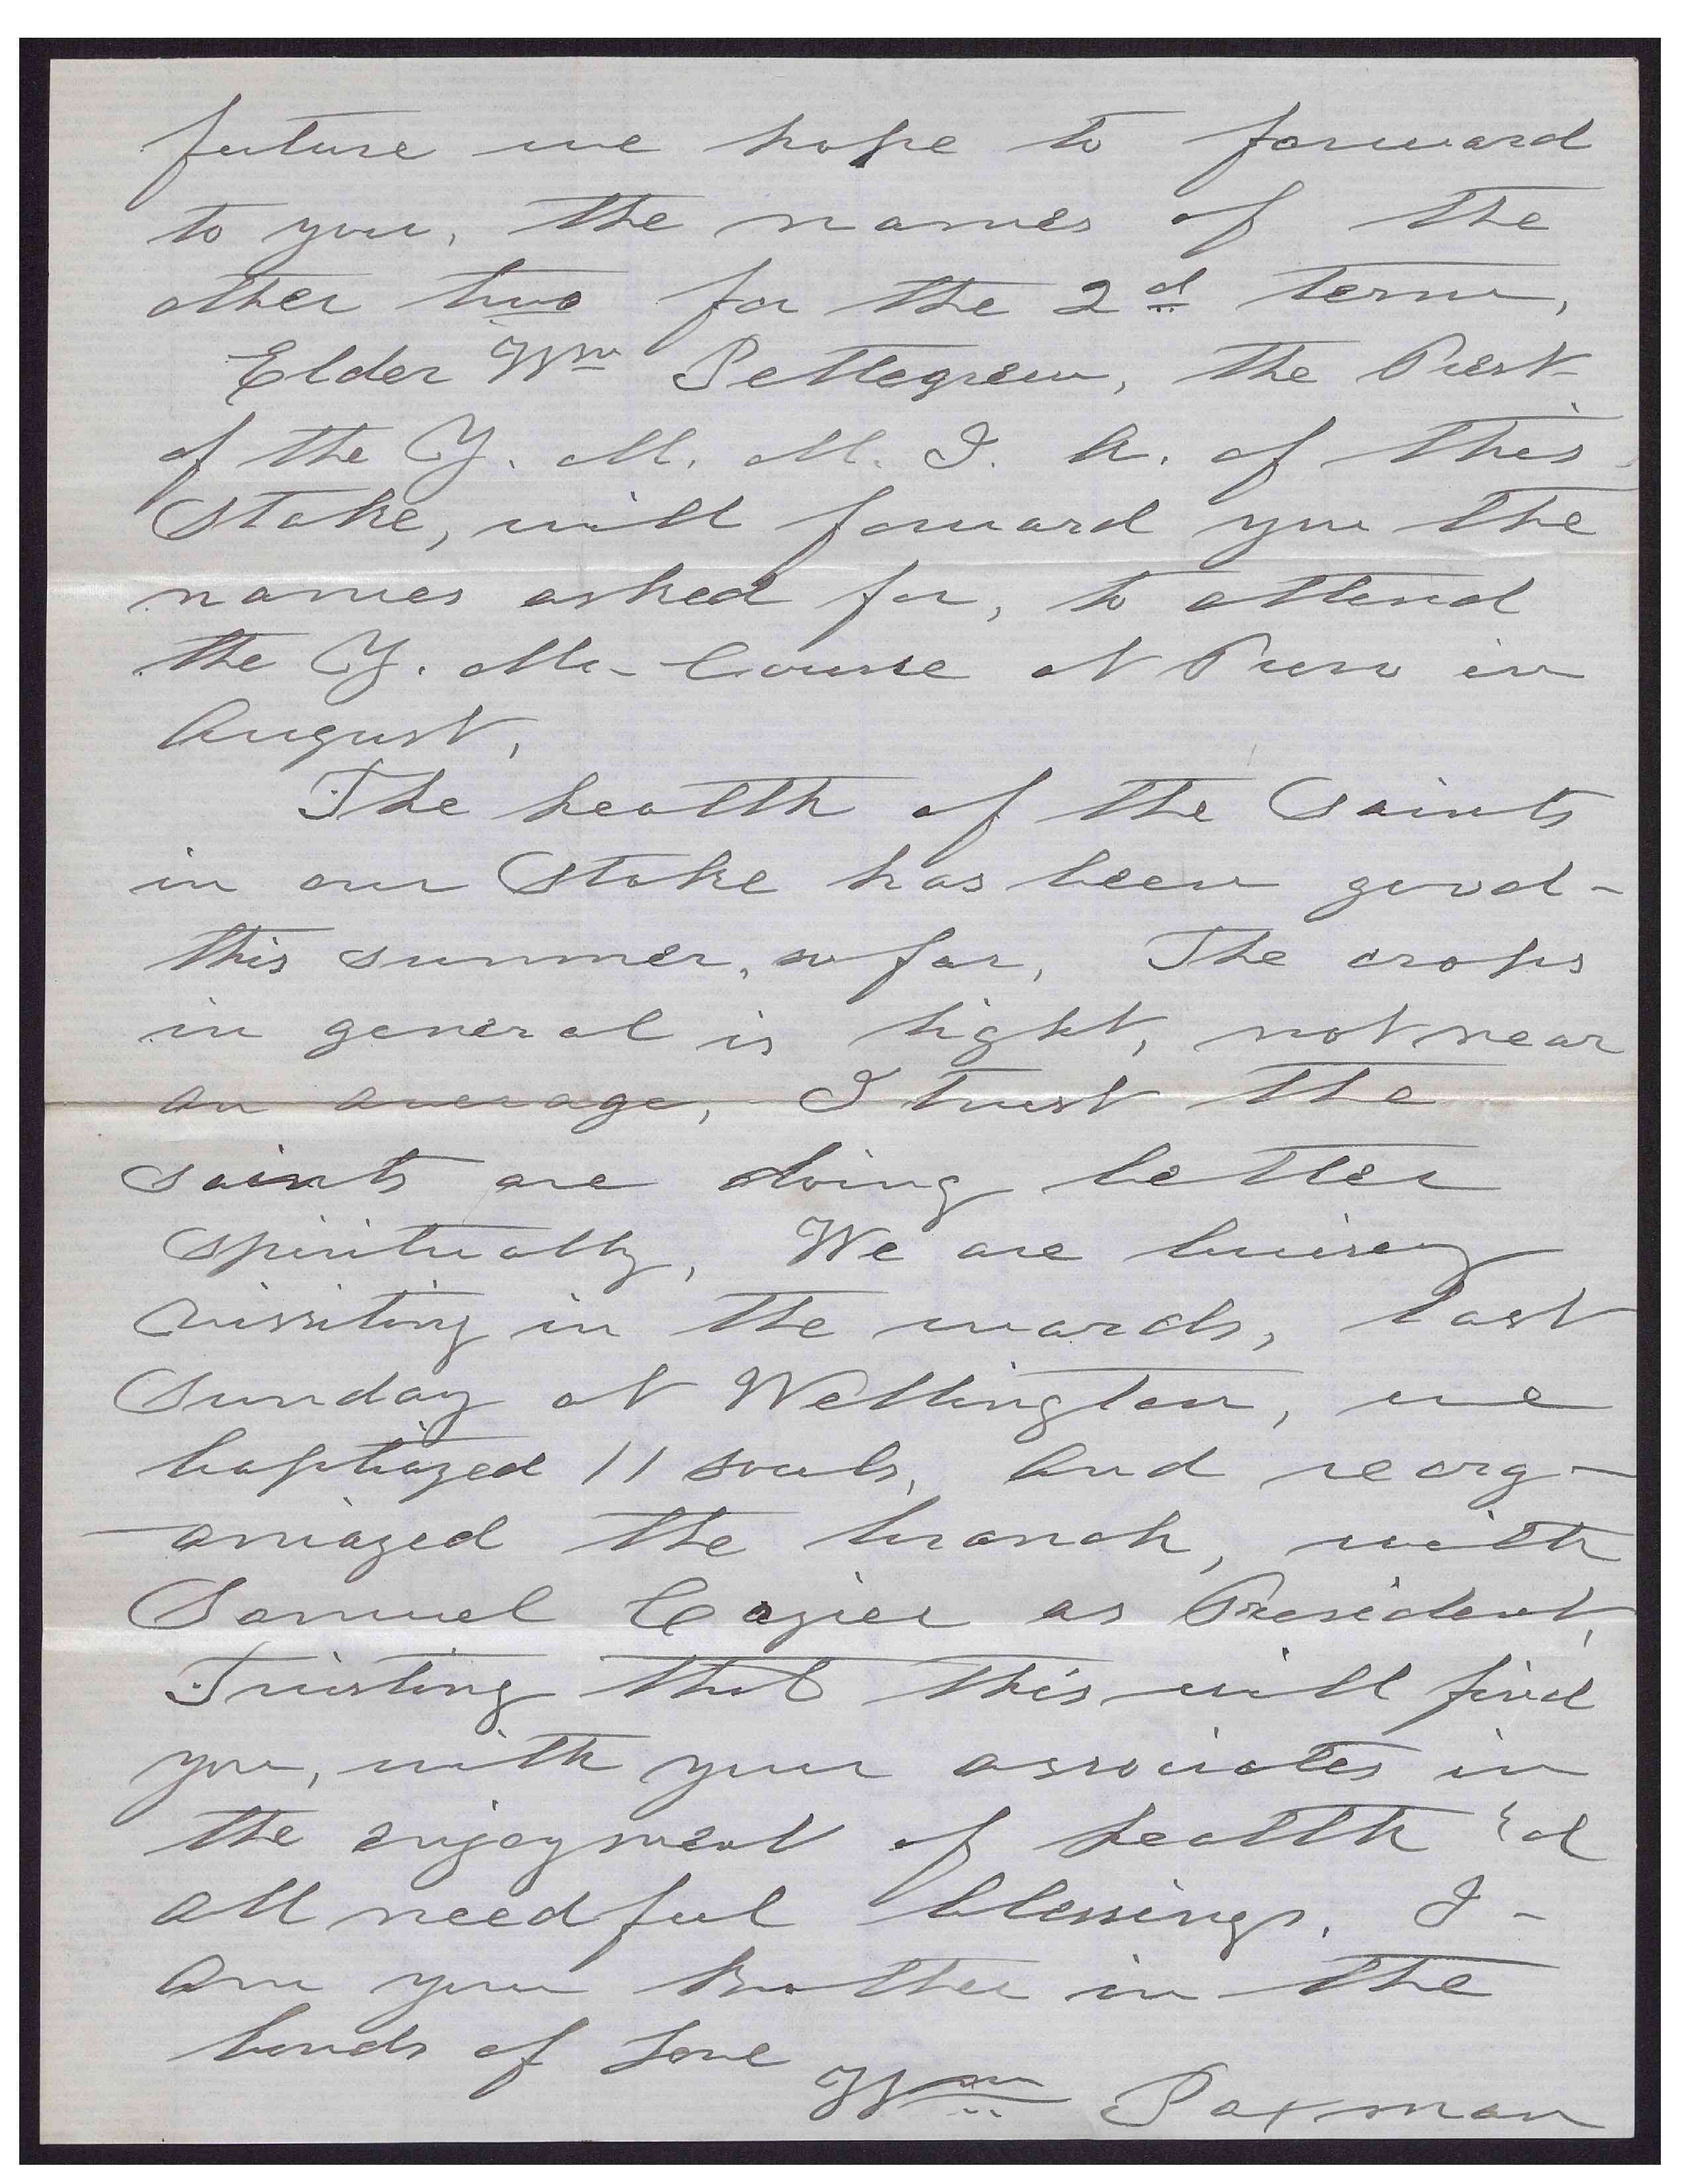 future we hope to forward
to you, the names of the
other two for the 2d term,
Elder Wm Pettegrew, the Prest
of the Y. M. M. I. A. of this
Stake, will forward you the
names asked for, to attend
the Y. M. Course at Provo in
August,
The health of the Saints
in our Stake has been good -
this summer, so far, The crops
in general is light, not near
an average, I trust the
saints are doing better
spiritually, We are buisey
vissiting in the wards, last
Sunday at Wellington, we
baptized 11 souls, and reorg-
-aniazed the branch, with
Samuel Cazier as President,
Trusting that this will find
you, with your associates in
the enjoyment of health &d
all needful blessings. I -
am your Brother in the
bonds of Love
Wm Paxman